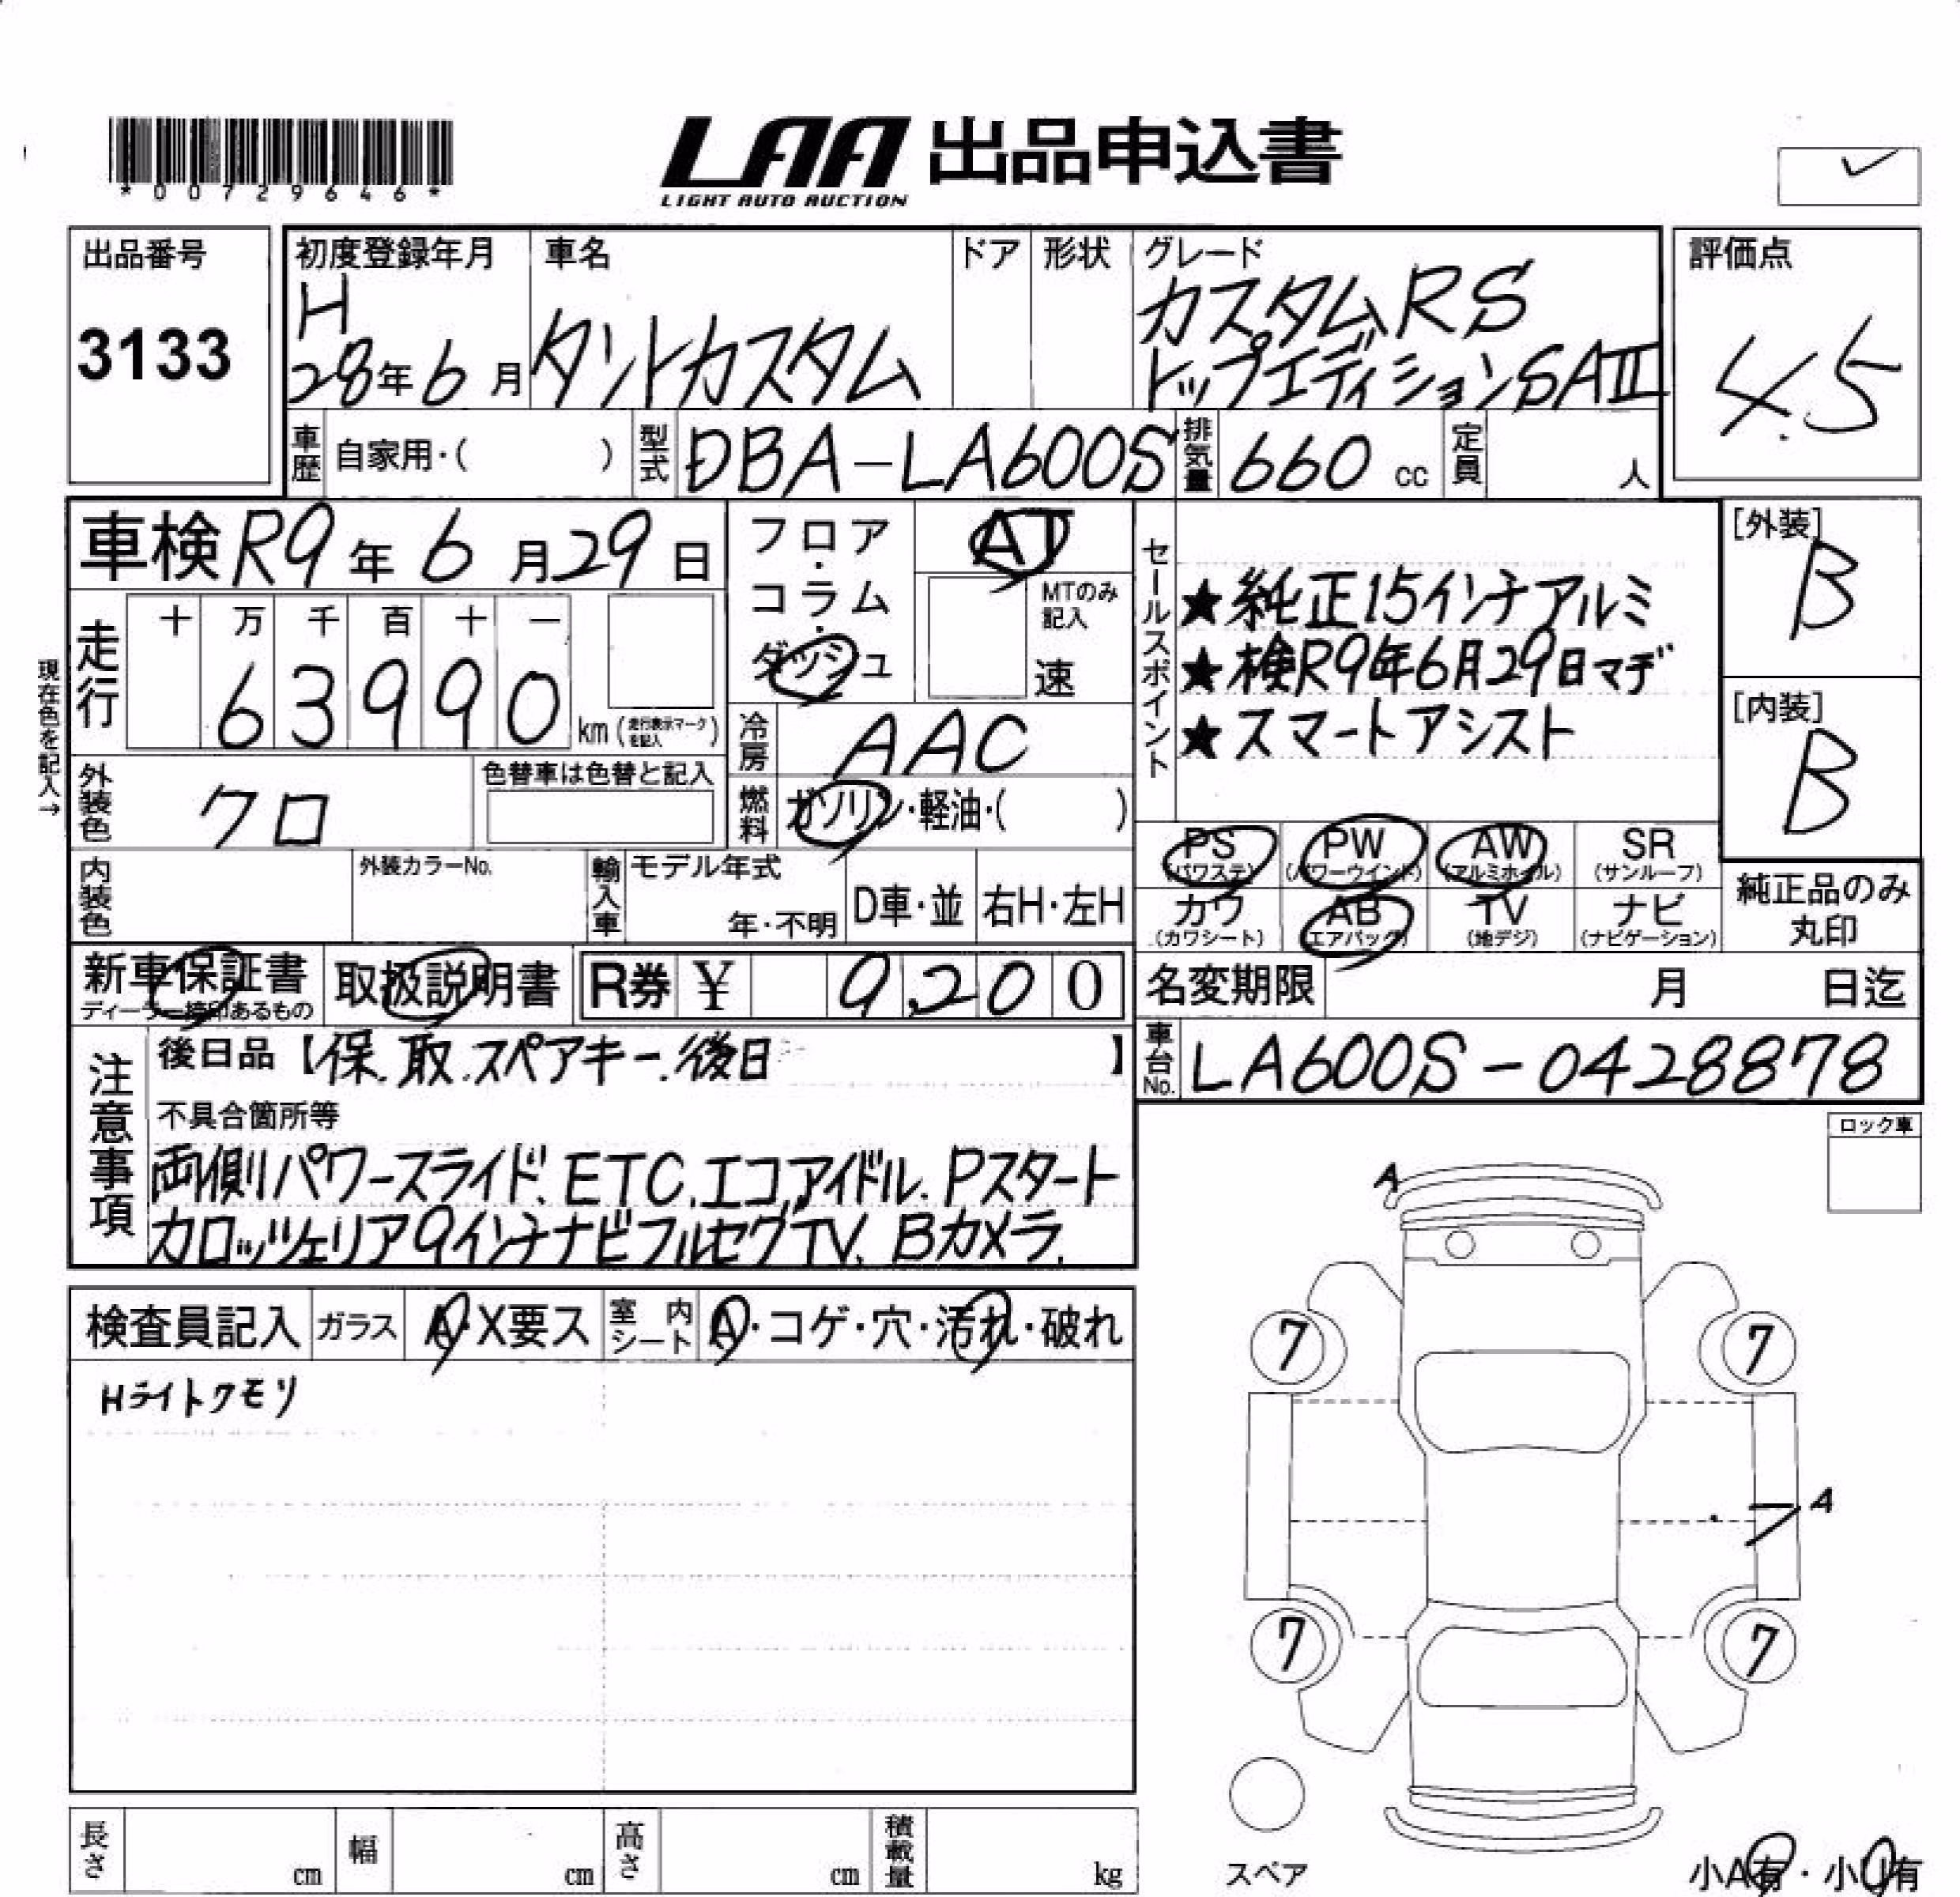 *00729646*
LAA 出品申込書
LIGHT AUTO AUCTION
出品番号
3133
初度登録年月
H
28年6月
車名
タントカスタム
ドア
形状
グレード
カスタムRS
トップエディションSAIII
評価点
4.5
車歴
自家用・( )
型式
DBA-LA600S
排気量
660 cc
定員
人
車検 R9年6月29日
フロア・コラム・ダッシュ
AT
MTのみ記入
速
セールスポイント
★純正15インチアルミ
★検R9年6月29日マデ
★スマートアシスト
[外装]
B
[内装]
B
現在色を記入→
走行
十 万 千 百 十 一
63990 km (走行表示マークを記入)
冷房
AAC
外装色
クロ
色替車は色替と記入
燃料
ガソリン・軽油・( )
PS (パワステ)
PW (パワーウインド)
AW (アルミホイル)
SR (サンルーフ)
カワ (カワシート)
AB (エアバック)
TV (地デジ)
ナビ (ナビゲーション)
純正品のみ
丸印
内装色
外装カラーNo.
輸入車
モデル年式
年・不明
D車・並
右H・左H
新車保証書
ディーラー捺印あるもの
取扱説明書
R券 ¥ 9,200
名変期限 月 日迄
車台No.
LA600S-0428878
注意事項
後日品【保.取.スペアキー.後日 】
不具合箇所等
両側パワースライド、ETC、エコアイドル、Pスタート
カロッツェリア9インチナビフルセグTV、Bカメラ、
ロック車
検査員記入
ガラス
A・X要ス
室内シート
A・コゲ・穴・汚れ・破れ
Hライトクモリ
A
7
7
A
7
7
スペア
小A有・小U有
長さ cm
幅 cm
高さ cm
積載量 kg